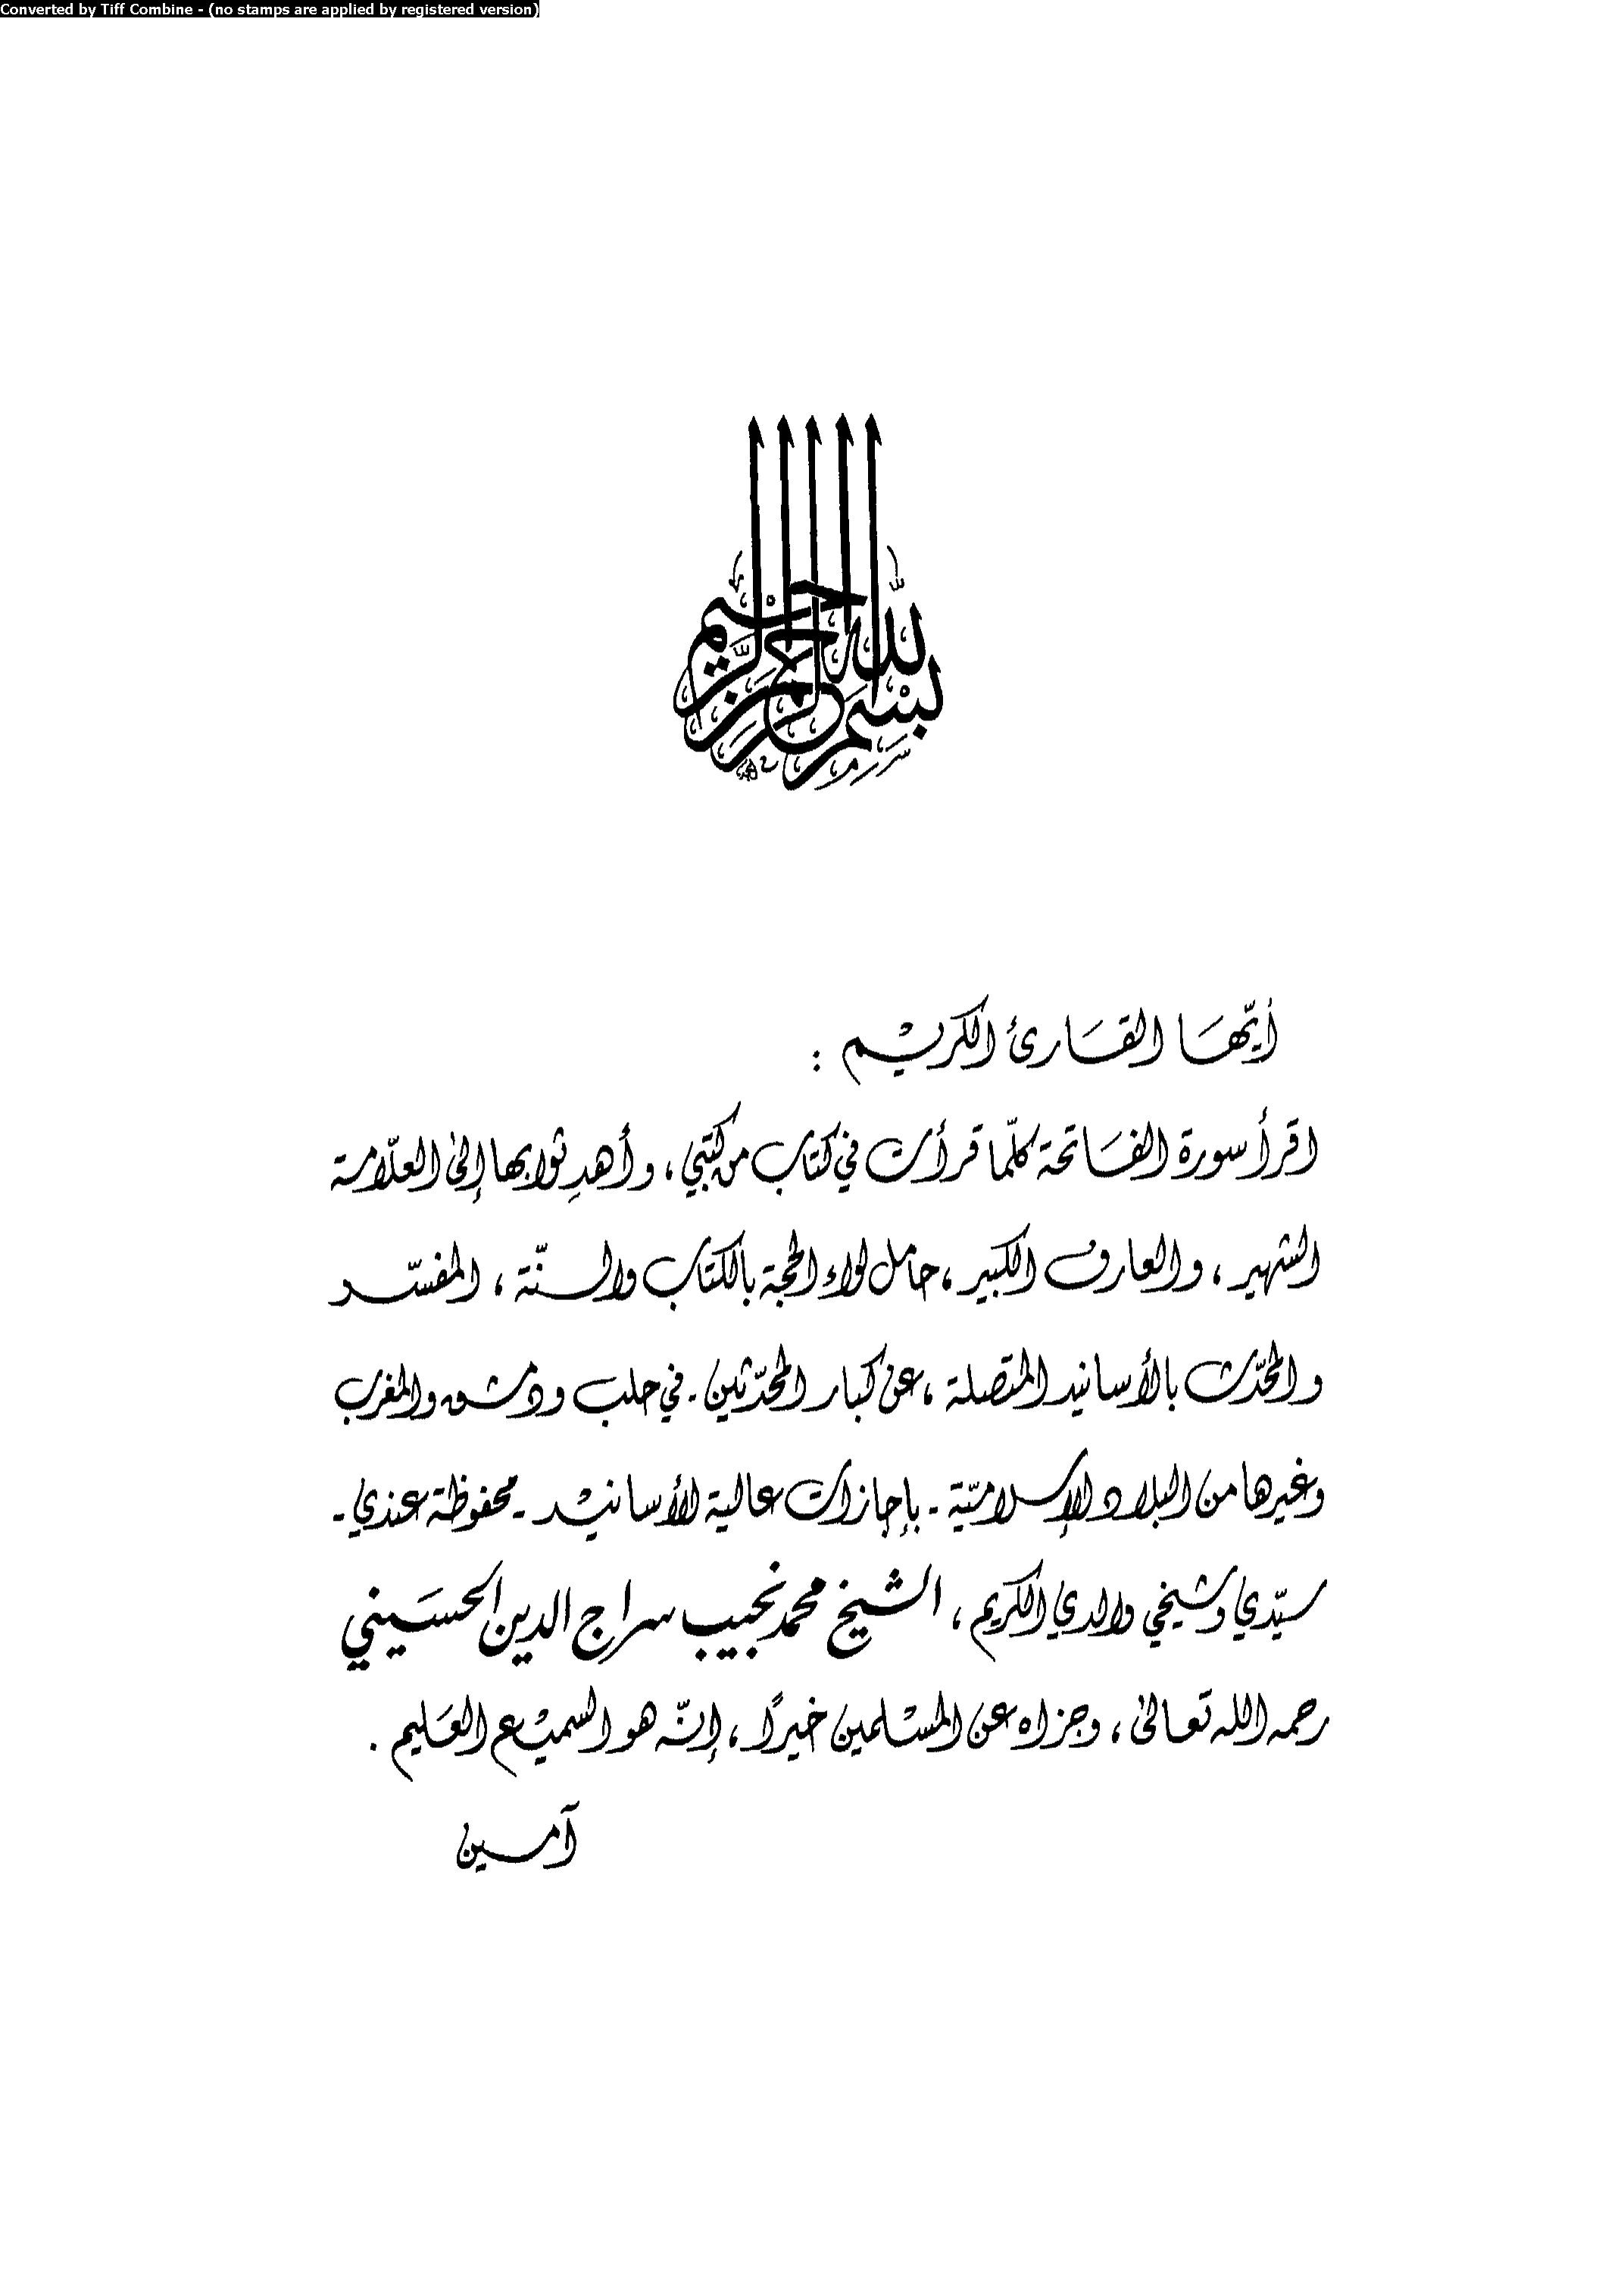 Converted by Tiff Combine - (no stamps are applied by registered version)
بسم الله الرحمن الرحيم
أيّها القارئ الكريم :
اقرأ سورة الفاتحة كلّما قرأت في كتاب من كتبي ، وأهدِ ثوابها إلى العلّامة
الشهير ، والعارف الكبير ، حامل لواء الحجة بالكتاب والسنّة ، المفسّر
والمحدّث بالأسانيد المتصلة ، عن كبار المحدّثين - في حلب ودمشق والمغرب
وغيرها من البلاد الإسلاميّة - بإجازات عالية الأسانيد - محفوظة عندي -
سيّدي وشيخي والدي الكريم ، الشيخ محمد نجيب سراج الدين الحسيني
رحمه الله تعالى ، وجزاه عن المسلمين خيراً ، إنّه هو السميع العليم .
آمين